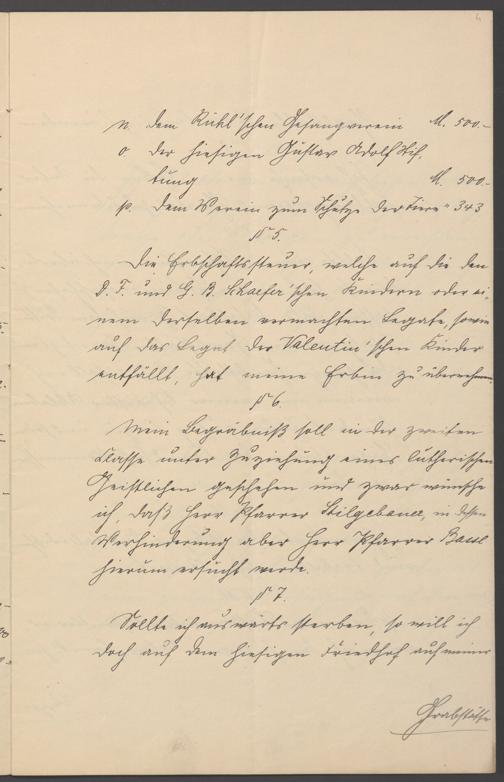 4
n. dem Rühl'schen Gesangverein M. 500.-
o der hiesigen Gustav Adolf Stif-
tung M. 500.-
p. dem Verein zum Schutze der Tiere " 343
§ 5.
Die Erbschaftssteuer, welche auf die den
D. F. und G. B. Schaefer'schen Kindern oder ei-
nem derselben vermachten Legate, sowie
auf das Legat der Valentin'schen Kinder
entfällt, hat meine Erbin zu übernehmen.
§ 6.
Mein Begräbniß soll in der zweiten
Classe unter Zuziehung eines lutherischen
Geistlichen geschehen und zwar wünsche
ich, daß Herr Pfarrer Stilgebauer, in dessen
Verhinderung aber Herr Pfarrer
hierum ersucht werde.
§ 7.
Sollte ich auswärts sterben, so will ich
doch auf dem hiesigen Friedhof auf meiner
Grabstätte